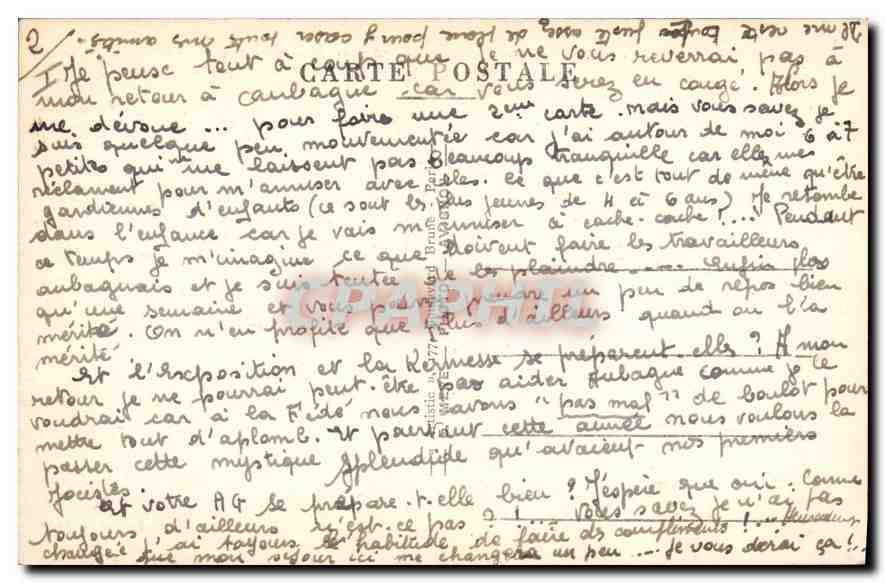 2
I Je pense tout à coup que je ne vous reverrai pas à
CARTE POSTALE
mon retour à Aubagne car vous serez en congé. Alors je
me dévoue ... pour faire une 2ème carte. mais vous savez je
suis quelque peu mouvementée car j'ai autour de moi 6 à 7
petites qui ne laissent pas beaucoup tranquille car elles me
réclament pour m'amuser avec elles. Ce que c'est tout de même qu'être
gardiennes d'enfants (ce sont les plus jeunes de 4 à 6 ans) Je retombe
dans l'enfance car je vais m'amuser à cache-cache !.... Pendant
ce temps je m'imagine ce que doivent faire les travailleurs
aubagnais et je suis tentée de les plaindre .... enfin plus
qu'une semaine et vous pourrez prendre un peu de repos bien
mérité. On n'en profite que plus d'ailleurs quand on l'a
mérité
Et l'Exposition et la Kermesse se préparent-elles ? A mon
retour je ne pourrai peut-être pas aider Aubagne comme je le
voudrai car à la Fédé nous avons "pas mal" de boulot pour
mettre tout d'aplomb. Et pourtant cette année nous voulons la
passer cette mystique splendide qu'avaient nos premiers
Jocistes.
et votre AG se prépare-t-elle bien ? J'espère que oui. Comme
toujours d'ailleurs n'est-ce pas ? ! Vous savez je n'ai pas
changée j'ai toujours l'habitude de faire des compliments !
que mon séjour ici me changera un peu ... je vous dirai ça !..
Il me reste toujours juste assez de place pour y caser toute mes amitiés.
CPARHTL